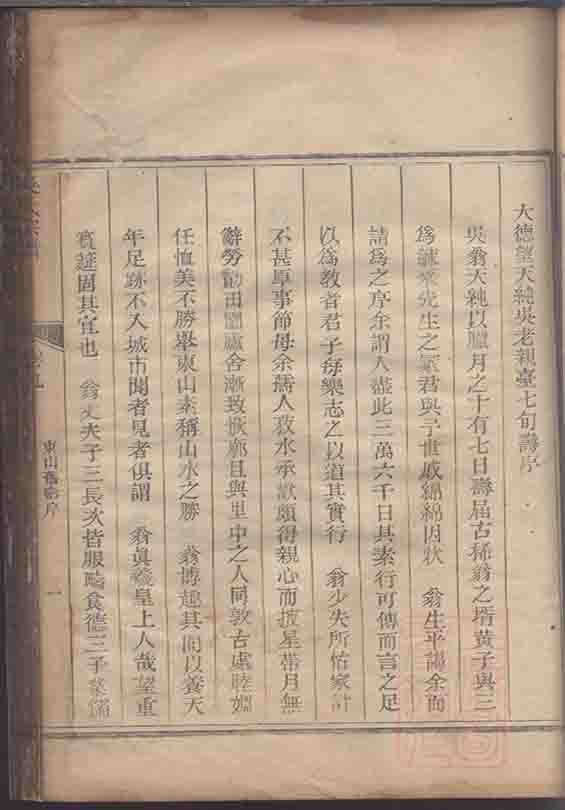 大德望天純吳老親臺七旬壽序
吳翁天純以臘月之十有七日壽届古稀翁之壻黄子與三
爲 先生之 君與予世戚綿綿因狀 翁生平謁余而
請爲之序余謂人盡此三萬六千日其素行可傳而言之足
以爲教者君子每樂志之以道其實行 翁少失所怙家計
不甚厚事節母余孺人菽水承歡頗得親心而披星帶月無
辭勞勩田園廬舍漸致恢廓且與里中之人同敦古處睦婣
任恤美不勝舉東山素稱山水之勝 翁博趣其間以養天
年足跡不入城市聞者見者俱謂 翁眞羲皇上人哉望重
賓筵固其宜也 翁丈夫子三長次皆服疇食德三子
東山舊 序
一